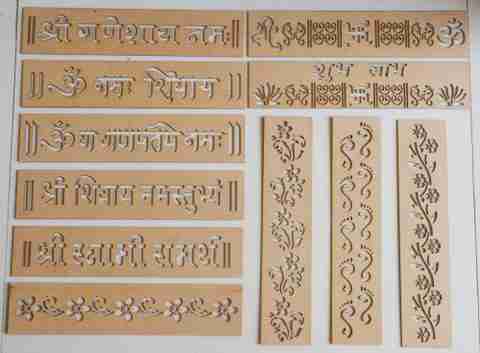 || श्री गणेशाय नमः ||
|| ॐ नमः शिवाय ||
|| ॐ गं गणपतये नमः ||
|| श्री शिवाय नमस्तुभ्यं ||
|| श्री स्वामी समर्थ ||
ॐ
शुभ लाभ